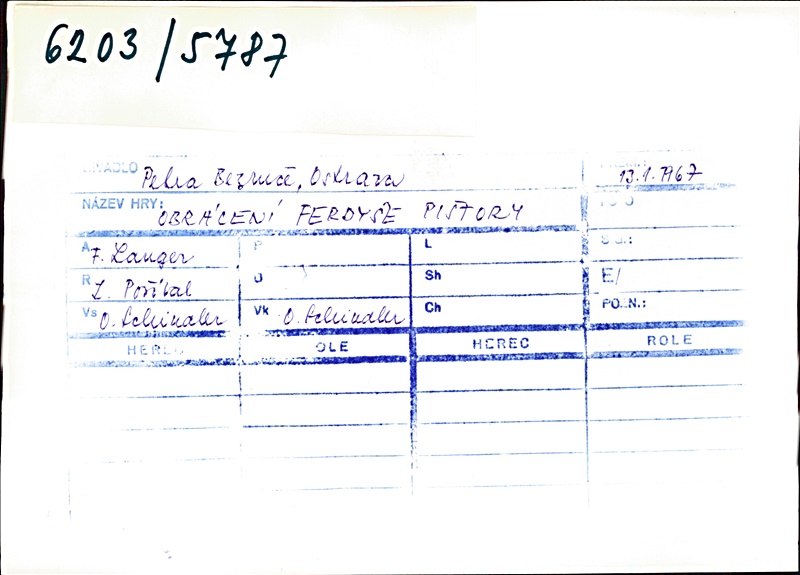 6203/5787
DIVADLO Petra Bezruče, Ostrava 13.1.1967
NÁZEV HRY: OBRÁCENÍ FERDYŠE PIŠTORY
A F. Langer P L
R Z. Pošíval U Sh E/
Vs O. Schindler Vk O. Schindler Ch POZN.:
HEREC ROLE HEREC ROLE